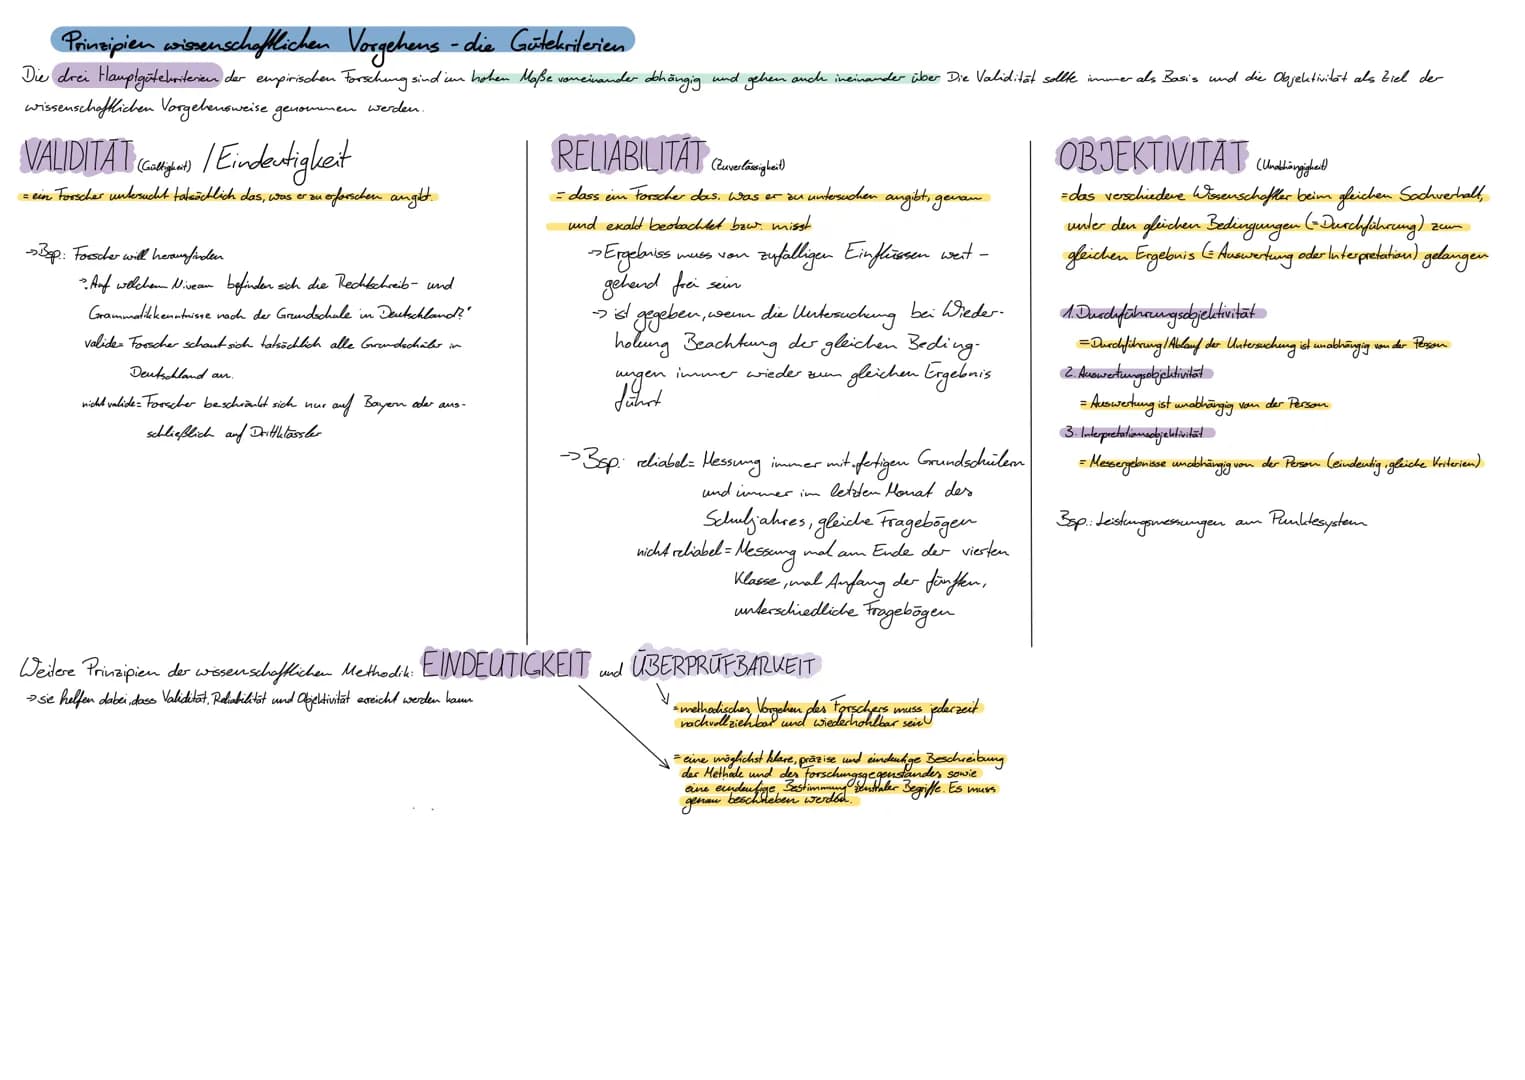 Prinzipien wissenschaftlichen Vorgehens - die Gütekriterien
Die drei Hauptgütekriterien der empirischen Forschung sind im hohen Maße voneinander abhängig und gehen auch ineinander über Die Validität sollte immer als Basis und die Objektivität als Ziel der
wissenschaftlichen Vorgehensweise genommen werden.
VALIDITÄT (Gültigkeit) / Eindeutigkeit
= ein Forscher untersucht tatsächlich das, was er zu erforschen angibt.
→ Bsp.: Forscher will herausfinden
"Auf welchem Niveau befinden sich die Rechtschreib- und
Grammatikkenntnisse nach der Grundschule in Deutschland?"
valide= Forscher schaut sich tatsächlich alle Grundschüler in
Deutschland an.
nicht valide= Forscher beschränkt sich nur auf Bayern oder aus-
schließlich auf Drittklässler
RELIABILITÄT (Zuverlässigkeit)
= dass ein Forscher das, was er zu untersuchen angibt, genau
und exakt beobachtet bzw. misst
→ Ergebniss muss von zufälligen Einflüssen weit-
gehend frei sein
→ ist gegeben, wenn die Untersuchung bei Wieder-
holung Beachtung der gleichen Beding-
ungen immer wieder zum gleichen Ergebnis
führt
→ Bsp: reliabel= Messung immer mit fertigen Grundschülern
und immer im letzten Monat des
Schuljahres, gleiche Fragebögen
nicht reliabel= Messung mal am Ende der vierten
Klasse, mal Anfang der fünften,
unterschiedliche Fragebögen
OBJEKTIVITÄT (Unabhängigkeit)
= das verschiedene Wissenschaftler beim gleichen Sachverhalt,
unter den gleichen Bedingungen (= Durchführung) zum
gleichen Ergebnis (= Auswertung oder Interpretation) gelangen
1. Durchführungsobjektivität
= Durchführung/Ablauf der Untersuchung ist unabhängig von der Person
2. Auswertungsobjektivität
= Auswertung ist unabhängig von der Person
3. Interpretationsobjektivität
= Messergebnisse unabhängig von der Person (eindeutig, gleiche Kriterien)
Bsp.: Leistungsmessungen am Punktesystem
Weitere Prinzipien der wissenschaftlichen Methodik: EINDEUTIGKEIT und ÜBERPRÜFBARKEIT
→ sie helfen dabei, dass Validität, Reliabilität und Objektivität erreicht werden kann
= methodisches Vorgehen des Forschers muss jederzeit
nachvollziehbar und wiederhohlbar sein
= eine möglichst klare, präzise und eindeutige Beschreibung
der Methode und des Forschungsgegenstandes sowie
eine eindeutige Bestimmung zentraler Begriffe. Es muss
genau beschrieben werden.